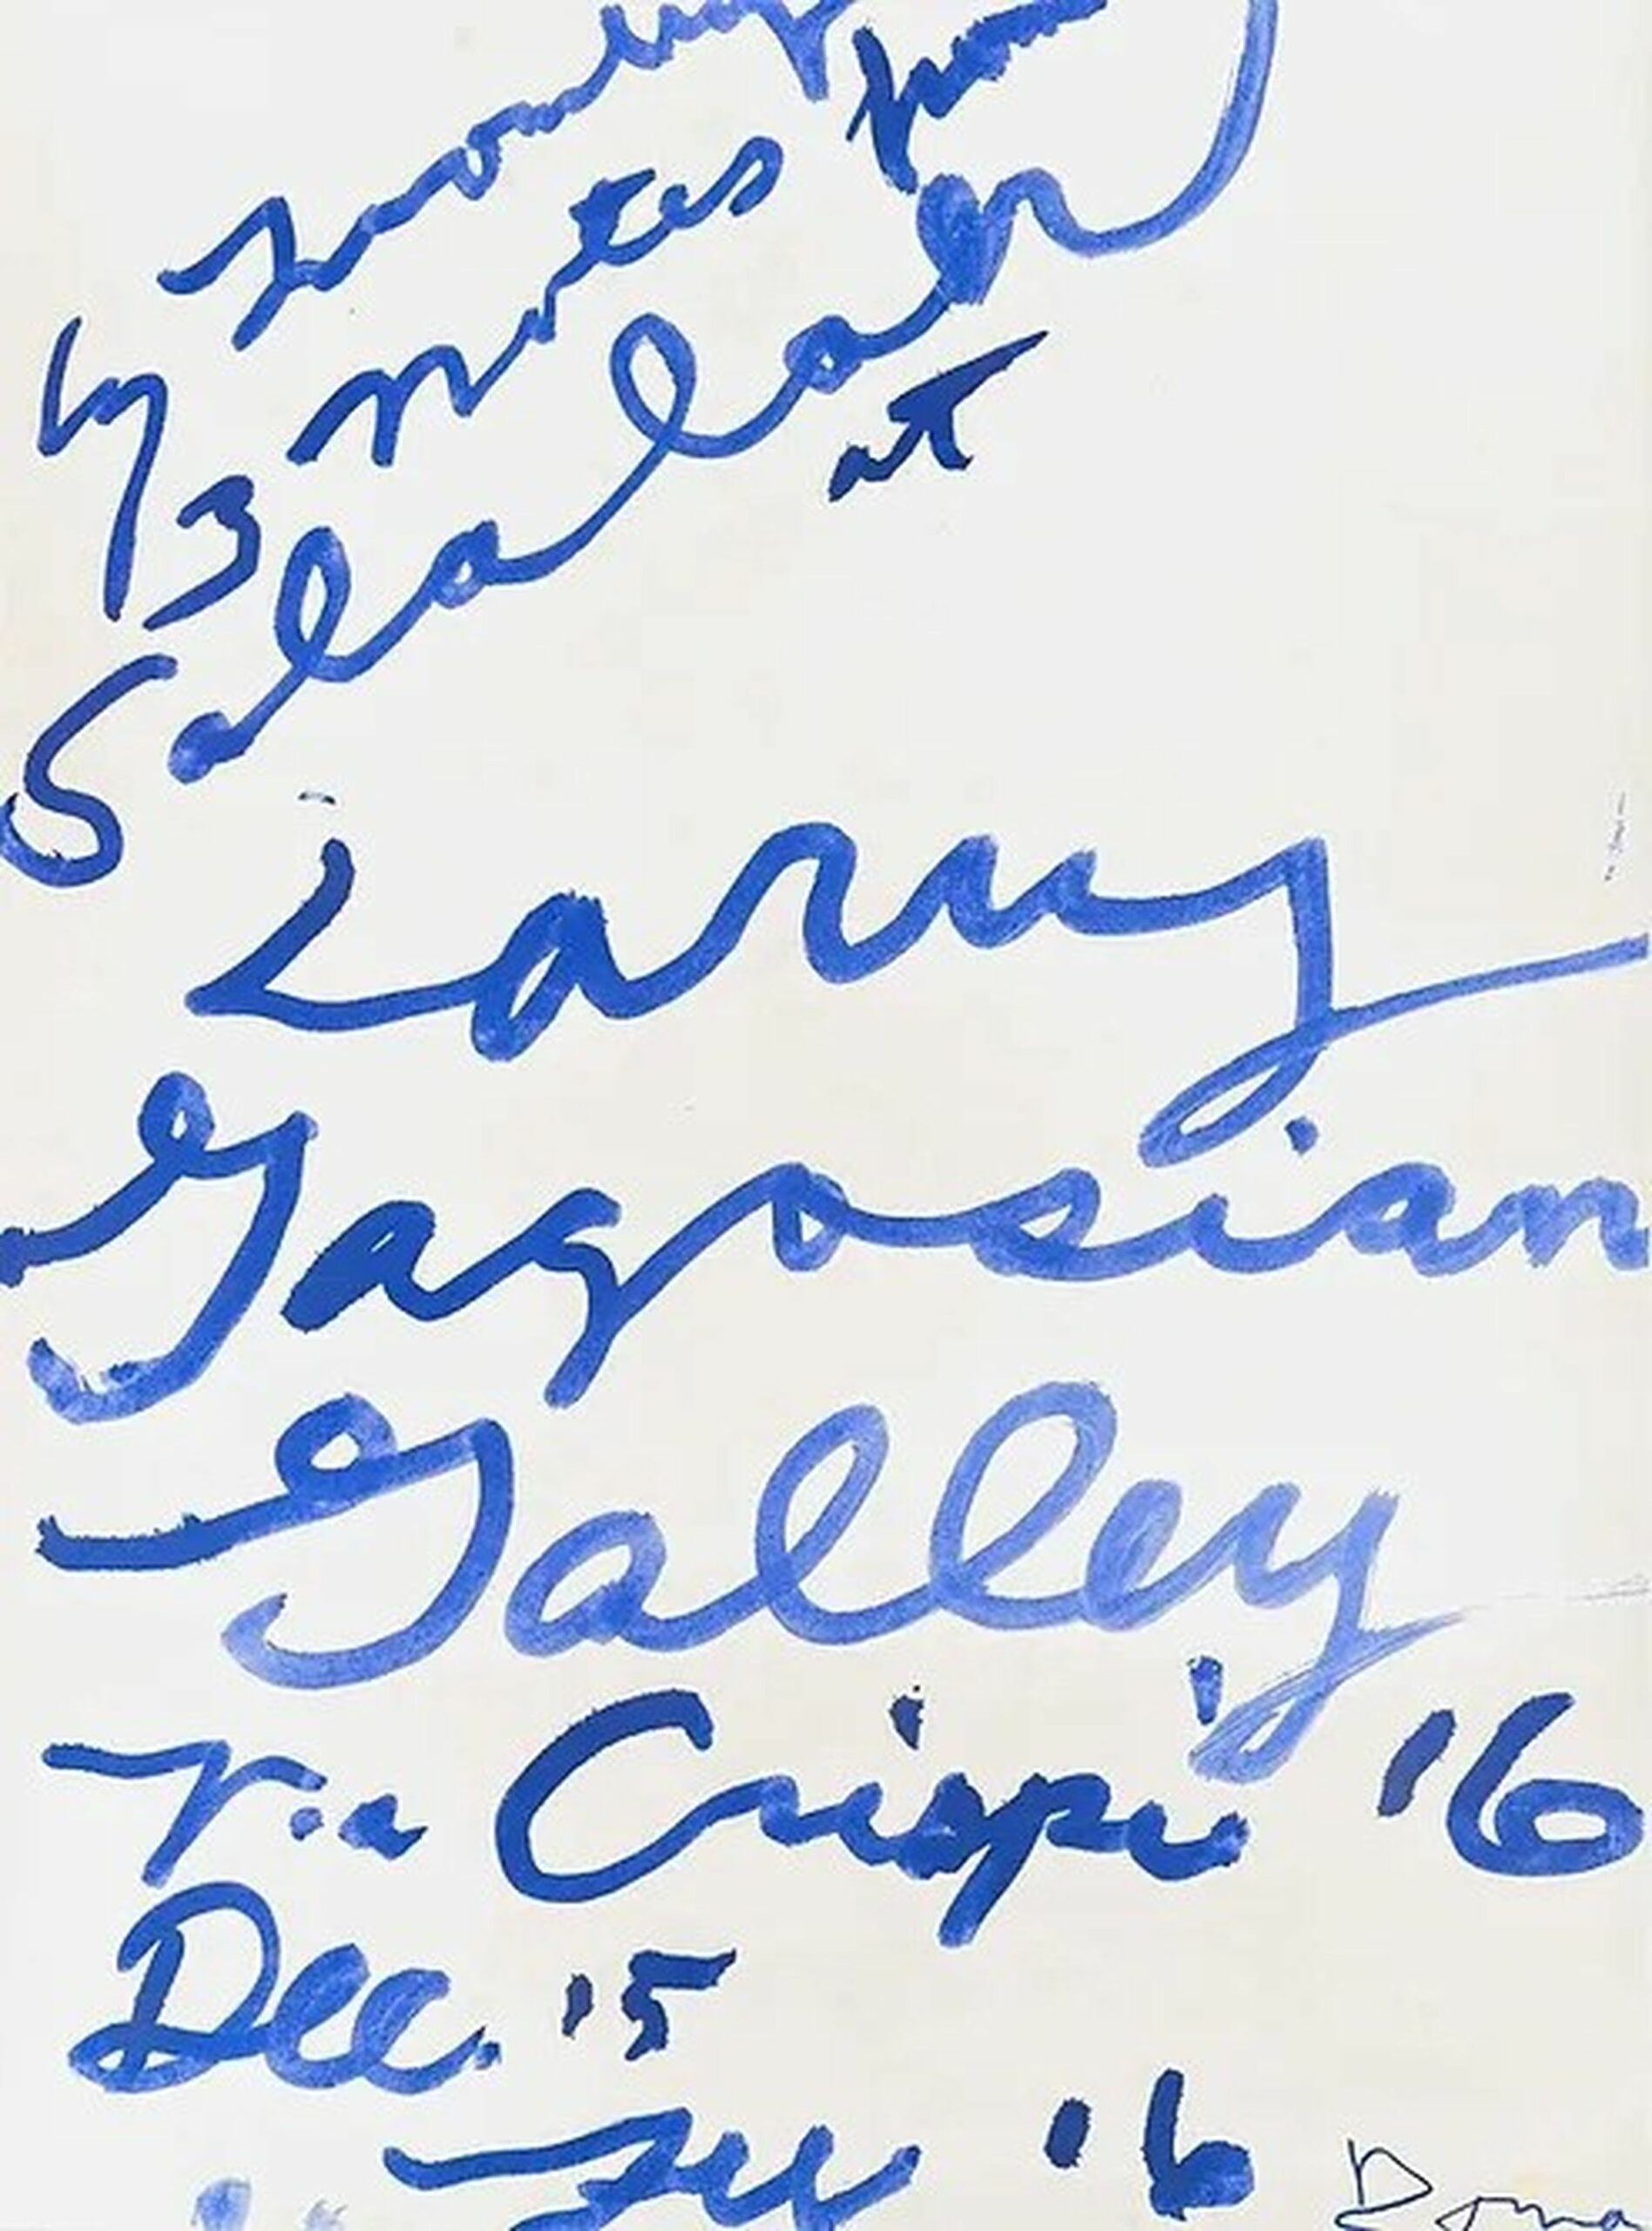 by
3 notes from
Salalah
at
Larry
Gagosian
Gallery
Via Crispi 16
Dec. 15
16
Roma